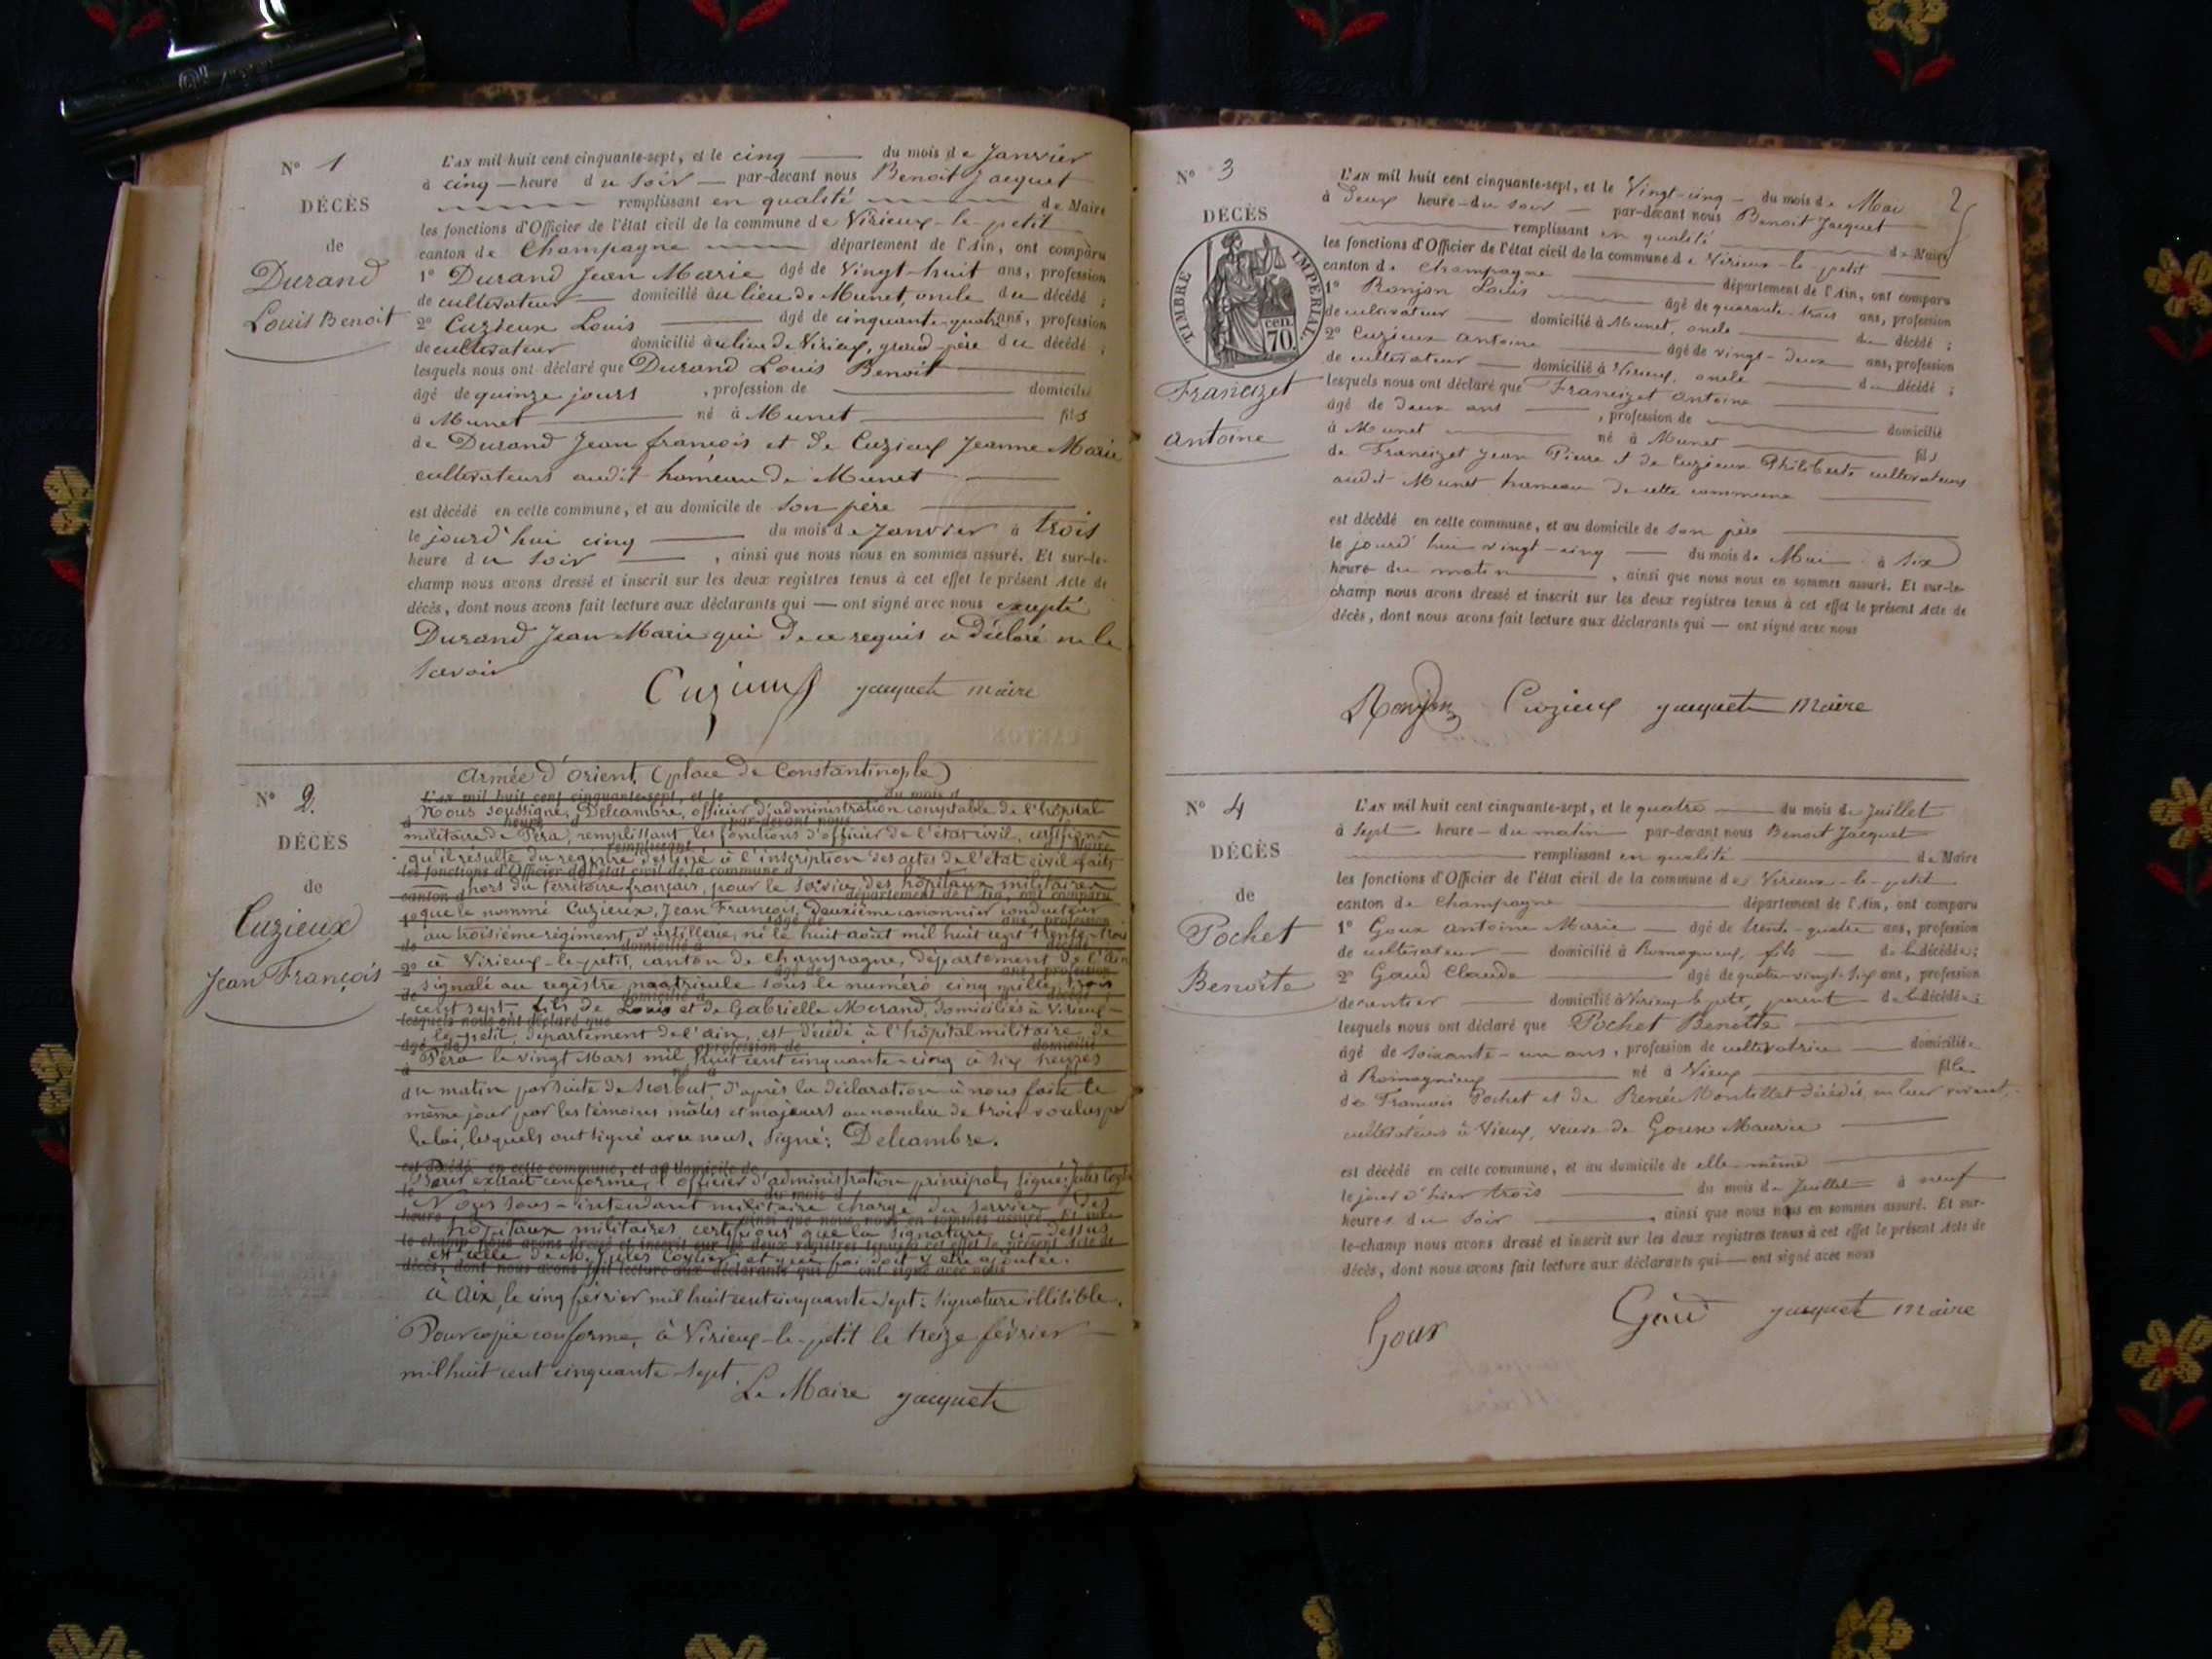 N° 1
DÉCÈS
de
Durand
Louis Benoit
L'AN mil huit cent cinquante-sept, et le cinq du mois de Janvier
à cinq heure du soir par-devant nous Benoit Jacquet
remplissant en qualité de Maire
les fonctions d'Officier de l'état civil de la commune de Virieux-le-petit
canton de Champagne département de l'Ain, ont comparu
1° Durand Jean Marie âgé de vingt-huit ans, profession
de cultivateur domicilié au lieu de Munet, oncle du décédé ;
2° Cuzieux Louis âgé de cinquante-quatre ans, profession
de cultivateur domicilié au lieu de Virieux, grand-père du décédé ;
lesquels nous ont déclaré que Durand Louis Benoit
âgé de quinze jours , profession de domicilié
à Munet né à Munet fils
de Durand Jean françois et de Cuzieux Jeanne Marie
cultivateurs audit hameau de Munet
est décédé en cette commune, et au domicile de son père
le jourd'hui cinq du mois de Janvier à trois
heure du soir , ainsi que nous nous en sommes assuré. Et sur-le-
champ nous avons dressé et inscrit sur les deux registres tenus à cet effet le présent Acte de
décès, dont nous avons fait lecture aux déclarants qui — ont signé avec nous excepté
Durand Jean Marie qui de ce requis a déclaré ne le
savoir
Cuzieux Jacquet maire
N° 2
DÉCÈS
de
Cuzieux
Jean François
Armée d'Orient (place de Constantinople)
L'AN mil huit cent cinquante-sept, et le du mois d
Nous soussigné, Delcambre, officier d'administration comptable de l'hôpital
militaire de Péra, remplissant les fonctions d'officier de l'état civil, certifions
qu'il résulte du registre destiné à l'inscription des actes de l'état civil faits
les fonctions d'Officier de l'état civil de la commune d
hors du territoire français, pour le service des hôpitaux militaires
canton d département de l'Ain, ont comparu
que le nommé Cuzieux, Jean François, deuxième canonnier conducteur
au troisième régiment d'artillerie, né le huit août mil huit cent trente-trois
à Virieux-le-petit, canton de Champagne, département de l'ain
signalé au registre matricule sous le numéro cinq mille trois
cent sept, fils de Louis et de Gabrielle Morand, domiciliés à Virieux-
lesquels nous ont déclaré que
le-petit, département de l'ain, est décédé à l'hôpital militaire de
Péra le vingt Mars mil huit cent cinquante-cinq à six heures
du matin par suite de scorbut, d'après la déclaration à nous faite le
même jour par les témoins mâles et majeurs au nombre de trois voulus par
la loi, lesquels ont signé avec nous. Signé: Delcambre.
est décédé en cette commune, et au domicile de
Pour extrait conforme, l'officier d'administration principal, signé: Jules
Nous sous-intendant militaire chargé du service des
hôpitaux militaires certifions que la signature ci-dessus
le-champ nous avons dressé et inscrit sur les deux registres tenus à cet effet le présent Acte de
est celle de M. Jules et que foi doit y être ajoutée.
décès, dont nous avons fait lecture aux déclarants qui ont signé avec nous
à Aix, le cinq février mil huit cent cinquante sept: signature illisible.
Pour copie conforme, à Virieux-le-petit le treize février
mil huit cent cinquante-sept.
Le Maire Jacquet
2
N° 3
DÉCÈS
TIMBRE IMPERIAL
70 cen.
Francizet
antoine
L'AN mil huit cent cinquante-sept, et le vingt-cinq du mois de Mai
à deux heure du soir par-devant nous Benoit Jacquet
remplissant en qualité de Maire
les fonctions d'Officier de l'état civil de la commune de Virieux-le-petit
canton de Champagne département de l'Ain, ont comparu
1° Ronjon Louis âgé de quarante-trois ans, profession
de cultivateur domicilié à Munet, oncle du décédé ;
2° Cuzieux antoine âgé de vingt-deux ans, profession
de cultivateur domicilié à Virieux, oncle du décédé ;
lesquels nous ont déclaré que Francizet antoine
âgé de deux ans , profession de domicilié
à Munet né à Munet fils
de Francizet Jean Pierre et de Cuzieux Philiberte cultivateurs
audit Munet hameau de cette commune
est décédé en cette commune, et au domicile de son père
le jourd'hui vingt-cinq du mois de Mai à six
heure du matin , ainsi que nous nous en sommes assuré. Et sur-le-
champ nous avons dressé et inscrit sur les deux registres tenus à cet effet le présent Acte de
décès, dont nous avons fait lecture aux déclarants qui — ont signé avec nous
Ronjon Cuzieux Jacquet Maire
N° 4
DÉCÈS
de
Pochet
Benoite
L'AN mil huit cent cinquante-sept, et le quatre du mois de Juillet
à sept heure du matin par-devant nous Benoit Jacquet
remplissant en qualité de Maire
les fonctions d'Officier de l'état civil de la commune de Virieux-le-petit
canton de Champagne département de l'Ain, ont comparu
1° Goux antoine Marie âgé de trente-quatre ans, profession
de cultivateur domicilié à Romagnieux, fils de la décédée ;
2° Gaud Claude âgé de quatre-vingt-six ans, profession
de rentier domicilié à Virieux le petit, parent de la décédée ;
lesquels nous ont déclaré que Pochet Benoîte
âgé de soixante-un ans, profession de cultivatrice domiciliée
à Romagnieux né à Vieux fille
de François Pochet et de Renée Montillet décédés, en leur vivant,
cultivateurs à Vieux, veuve de Goux Maurice
est décédé en cette commune, et au domicile de elle-même
le jour d'hier trois du mois de Juillet à neuf
heures du soir , ainsi que nous nous en sommes assuré. Et sur-
le-champ nous avons dressé et inscrit sur les deux registres tenus à cet effet le présent Acte de
décès, dont nous avons fait lecture aux déclarants qui — ont signé avec nous
Goux Gaud Jacquet Maire